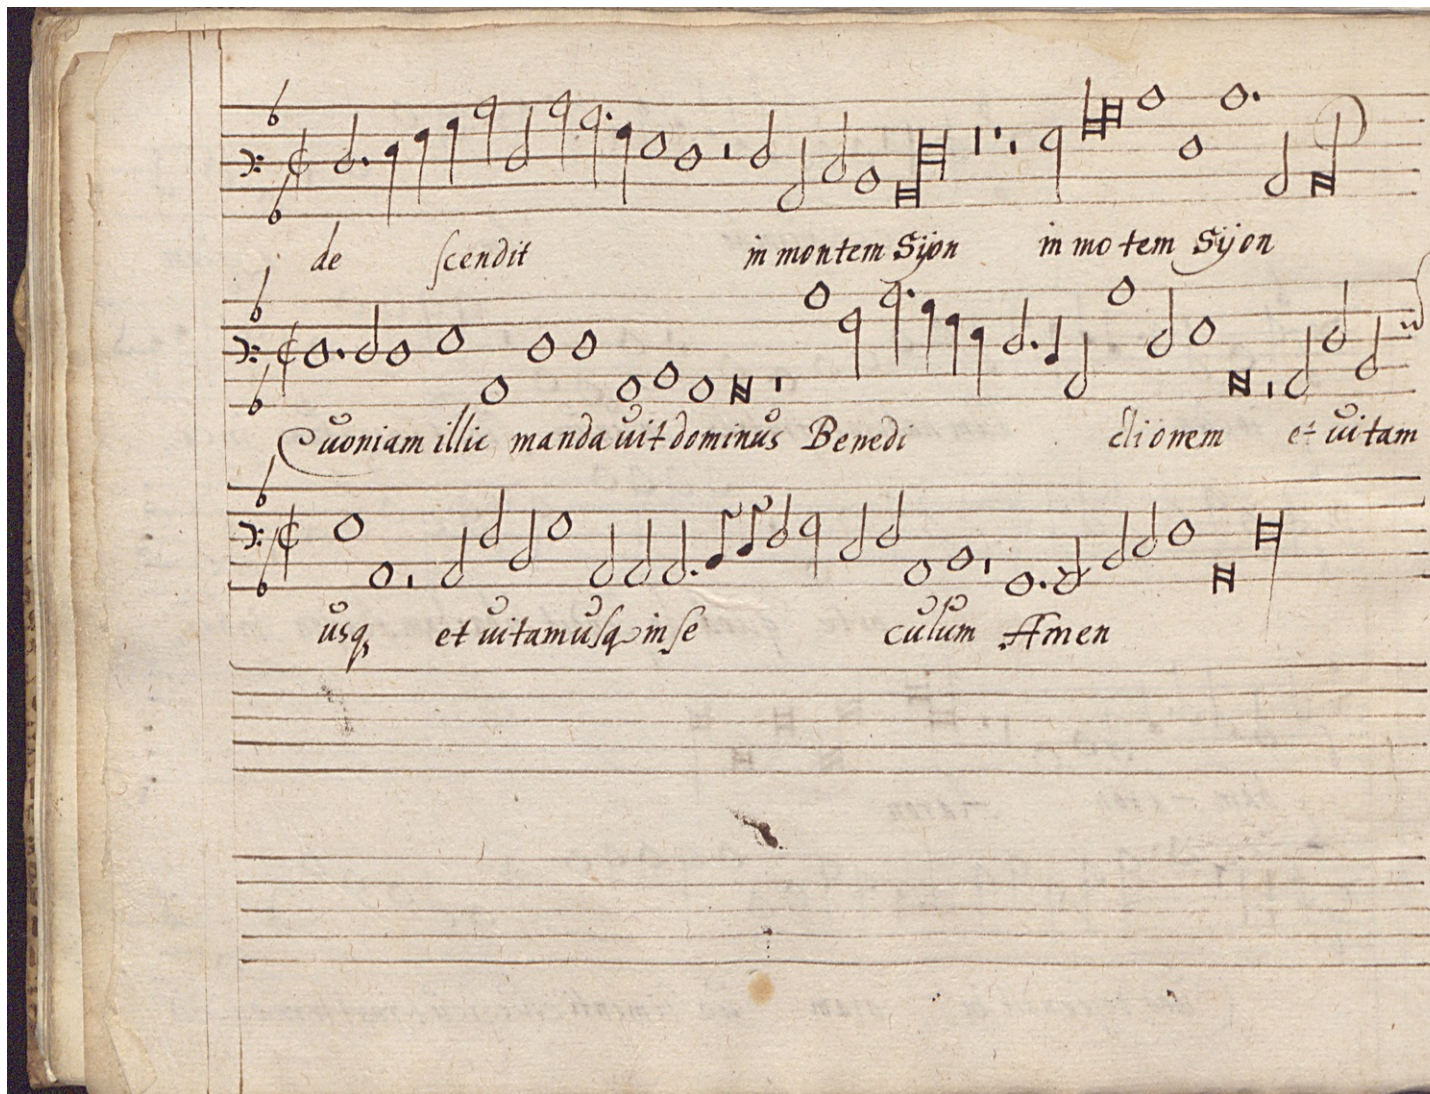 de scendit in montem Sijon in mo tem Sijon
Quoniam illic manda uit dominus Benedi ctionem et uitam
usq et uitam usq in se culum Amen